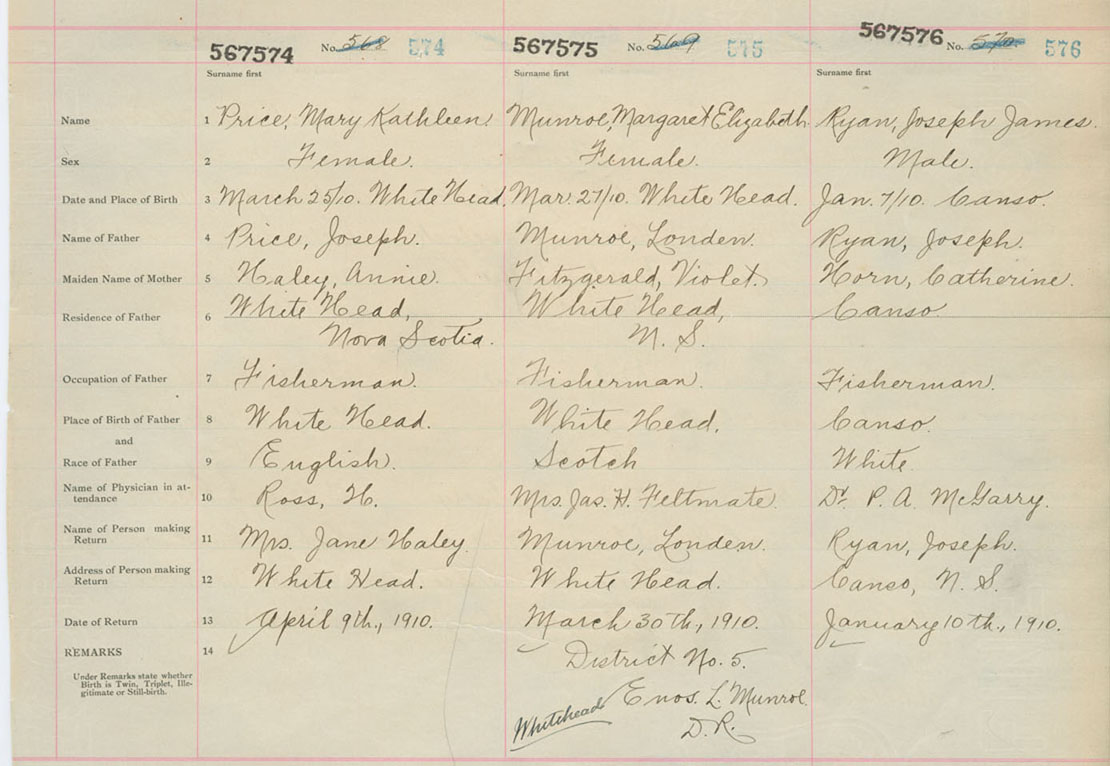 567574 No. 568 574 567575 No. 569 575 567576 No. 570 576
Surname first Surname first Surname first
Name 1 Price, Mary Kathleen. Munroe, Margaret Elizabeth. Ryan, Joseph James.
Sex 2 Female. Female. Male.
Date and Place of Birth 3 March 25/10. White Head. Mar. 27/10. White Head. Jan. 7/10. Canso.
Name of Father 4 Price, Joseph. Munroe, Londen. Ryan, Joseph.
Maiden Name of Mother 5 Haley, Annie. Fitzgerald, Violet. Horn, Catherine.
Residence of Father 6 White Head, White Head, Canso.
Nova Scotia. N. S.
Occupation of Father 7 Fisherman. Fisherman. Fisherman.
Place of Birth of Father 8 White Head. White Head. Canso.
and
Race of Father 9 English. Scotch White.
Name of Physician in at-
tendance 10 Ross, H. Mrs. Jas. H. Feltmate. Dr. P. A. McGarry.
Name of Person making
Return 11 Mrs. Jane Haley. Munroe, Londen. Ryan, Joseph.
Address of Person making
Return 12 White Head. White Head. Canso, N. S.
Date of Return 13 April 9th., 1910. March 30th, 1910. January 10th., 1910.
REMARKS 14 District No. 5.
Under Remarks state whether
Birth is Twin, Triplet, Ille-
gitimate or Still-birth.
Enos. L. Munroe.
Whitehead D. R.